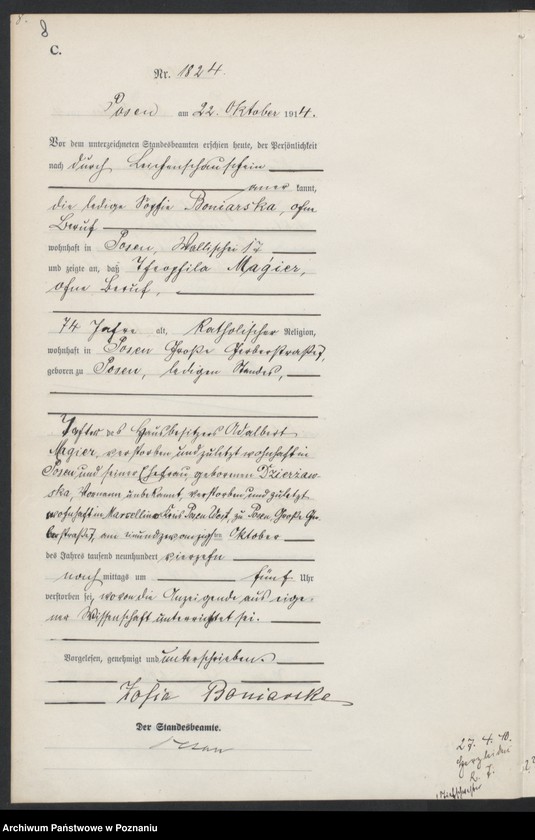 8.
8
C.
Nr. 1824.
Posen am 22. Oktober 1914.
Vor dem unterzeichneten Standesbeamten erschien heute, der Persönlichkeit
nach durch
kannt,
die ledige Sophie Boniarska, ohne
Beruf
wohnhaft in Posen, Wallischei 17
und zeigte an, daß Theophila Magier,
ohne Beruf,
74 Jahre alt, katholischer Religion,
wohnhaft in Posen Große Gerberstraße 7,
geboren zu Posen, ledigen Standes,
Tochter des Hausbesitzers Adalbert
Magier, verstorben und zuletzt wohnhaft in
Posen, und seiner Ehefrau, geborenen Dzierżaw-
ska, Vorname unbekannt, verstorben und zuletzt
wohnhaft in Marcellino Kreis Posen West, zu Posen Große Ger-
berstraße 7, am einundzwanzigsten Oktober
des Jahres tausend neunhundert vierzehn
nachmittags um fünf Uhr
verstorben sei, wovon die Anzeigende aus eige-
ner Wissenschaft unterrichtet sei.
Vorgelesen, genehmigt und unterschrieben.
Zofia Boniarska
Der Standesbeamte.
27. 4. 40.
Archiwum Państwowe w Poznaniu